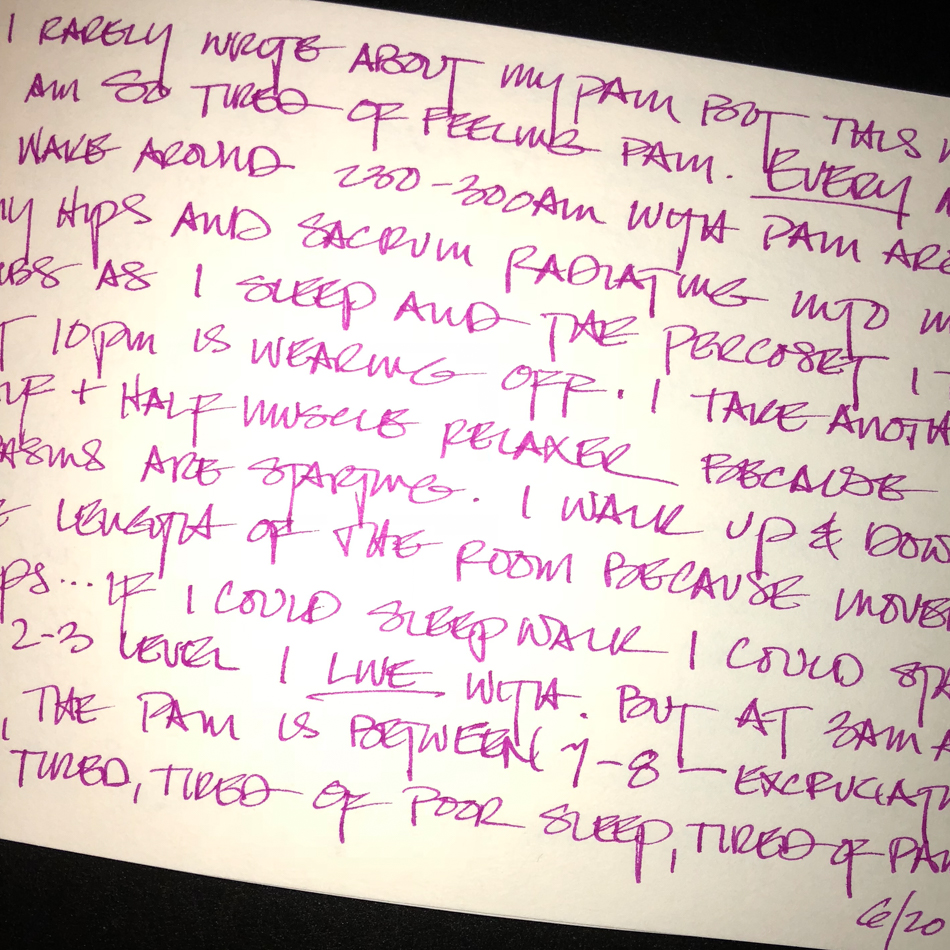 I RARELY WROTE ABOUT MY PAIN BUT THIS
AM SO TIRED OF FEELING PAIN. EVERY
WAKE AROUND 230-300AM WITH PAIN
HIPS AND SACRUM RADIATING INTO
AS I SLEEP AND THE PERCOSET I
10PM IS WEARING OFF. I TAKE
+ HALF MUSCLE RELAXER BECAUSE
ARE STARTING. I WALK UP & DOWN
LENGTH OF THE ROOM BECAUSE
... IF I COULD SLEEPWALK I COULD
2-3 LEVEL I LIVE WITH. BUT AT 3AM
, THE PAIN IS BETWEEN 7-8 -
TIRED, TIRED OF POOR SLEEP, TIRED OF
6/20